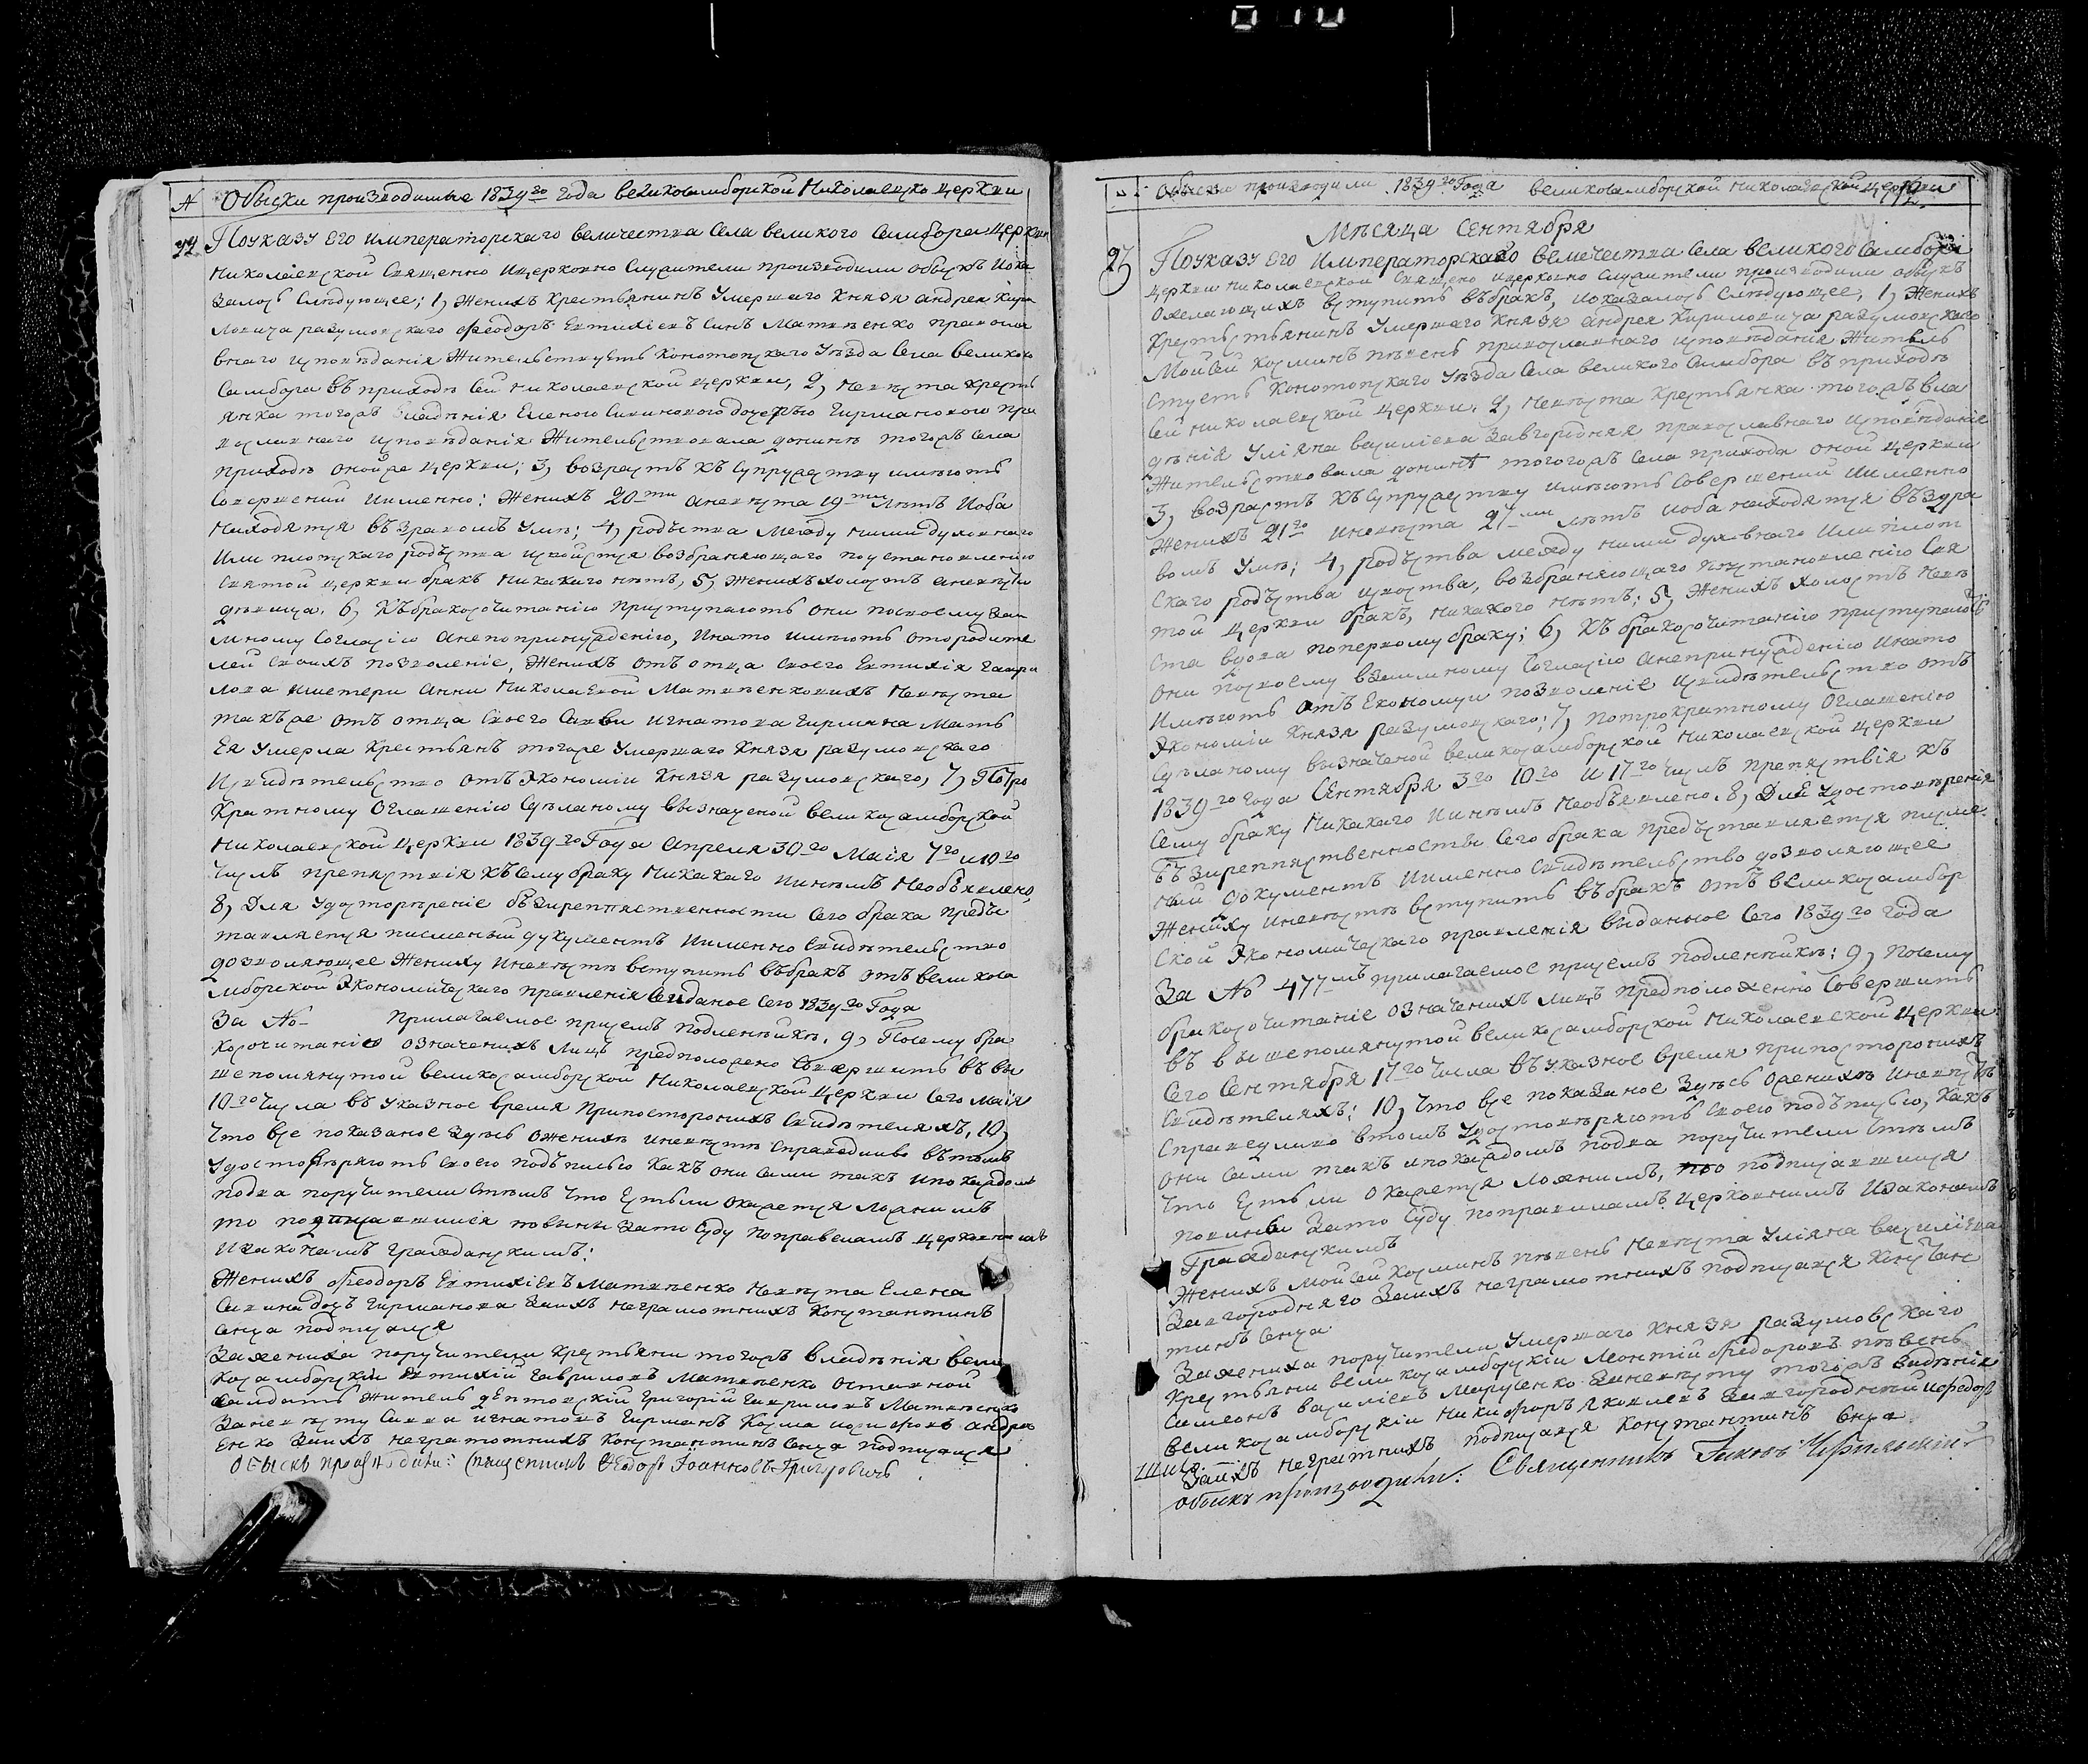 № Обыски производимые 1839го года великосамборской Николаевско церкви
Поуказу Его Императорскаго величества Села великого Самбора церкви
Николаевской Священно Ицерковно Служители производили обыскъ Иока
Залось Слѣдующее; 1, Женихъ Крестьянинъ Умершаго Князя андрея Кири
ловича разумовскаго Феодоръ Евтихіевъ Синъ Матвѣенко правосла
внаго исповѣданія Жительствуетъ Конотопскаго Уѣзда Села великого
Самбора въ приходѣ Сей Николаевской церкви, 2, Невѣста Кресть
янка тогожъ владѣнія Еленою Саввиновою дочерью Гирмановою пра
вославнаго исповѣданія Жительствовала донинѣ тогожъ Села
приходѣ онойже церкви; 3, возрастъ къ Супружеству имѣютъ
Совершений Иименно: Женихъ 20ти аневѣста 19ти лѣтъ Иоба
Находятся въ Здравомъ Умѣ; 4, родъства Между ними духовнаго
Или плотскаго родъства исвойства возбраняющаго поустановленію
Святой церкви бракъ Никакаго нѣтъ, 5, Женихъ холостъ аневѣста
дѣвица. 6, Къ бракосочитанію приступаютъ они посвоему взаи
мному Согласію анепопринужденію, Инато имѣютъ отъродите
лей Своихъ позволеніе, Женихъ отъ отца Своего Евтихія Гаври
лова иматери Анни Николаевой Матвѣенковихъ Невѣста
такъже отъ отца Своего Савви игнатова Гирмана Мать
Ея Умерла Крестьянъ тогоже Умершаго Князя разумовскаго
Исвидѣтельство отъ Экономіи Князя разумовскаго, 7, Потро
Кратному Оглашенію Сдѣланому вызначеной великосамборской
Николаевской церкви 1839го Года Апреля 30го Маія 7го и 10го
Числъ препятствія къ Сему браку Никакаго Ниѣмъ Необъявлено,
8, Для Удостовѣреніе бѣзпрепятственности Сего брака предъс
тавляется писменый дукументъ Иименно Свидѣтельство
дозволяющее Жениху Иневѣстѣ вступить въбракъ отъ великоса
мборской Экономическаго правленія виданое Сего 1839го Года
За №- Прилагаемое присемъ подленникѣ. 9, Посему бра
Косочитаніе означенихъ Лицъ предположено Совершить въ вы
шепомянутой великосамборской Николаевской церкви Сего Маія
10го Числа въ Указное время Припосторонихъ Свидѣтеляхъ, 10,
Что все показаное Здѣсь Оженихѣ Иневѣстѣ Справедливо въ томъ
Удостовѣряютъ Своею подъписью Какъ они Сами такъ Ипокаждомъ
подва поручители Стѣмъ Что Естьли Окажется Ложнимъ
то подписавшиеся повини Зато Суду Поправеламъ церковнимъ
Изаконамъ гражданскимъ:
Женихъ Феодоръ Евтихіевъ Матвѣенко Невѣста Елена
Саввина дочъ Гирманова Заихъ неграмотнихъ Константинъ
Сенча подписался
За жениха поручители крестьяни тогожъ владѣнія вели
косамборскіи Евтихій Гавриловъ Матвѣенко
Григорій Гавриловъ Матвѣенко
Заневѣсту Савва игнатовъ Гирманъ Козма иосифовъ андре
енко Заихъ Неграмотнихъ Константинъ Сенча подписался
Обыскъ производилъ: Священникъ Феодоръ Іоанновъ Григоровичъ
Обыски производили 1839го Года великосамборской Николаевской церкви
Мѣсяца Сентября
Поуказу Его Императорскаго величества Села великого Самбора
церкви Николаевской Священо ицерковно Служители производили обыскъ
Ожелающихъ вступить въбракъ, Иоказалось Слѣдующее, 1, Женихъ
Крестьянинъ Умершаго Князя андрея Кириловича разумовскаго
Моисей Козминъ Пѣвень православнаго исповѣданія Житель
ствуетъ Конотопскаго Уѣзда Села великого Самбора въ приходѣ
Сей Николаевской церкви. 2, Невѣста Крестьянка тогожъ вла
дѣнія Уліяна василіева Завгородняя православнаго исповѣданія
Жительствовала донинѣ тогогожъ Села прихода оной церкви
3, возрастъ къ Супружеству имѣютъ Совершений Иименно
Женихъ 21го Иневѣста 27ми лѣтъ Иоба находятся въ Здра
вомъ Умѣ; 4, родъства между ними духовнаго Или плот
скаго родъства исвоства, возбраняющаго поустановленію Свя
той церкви бракъ, Никакого нѣтъ; 5, Женихъ холостъ Невѣ
ста вдова поперкому браку; 6, къ бракосочитанію приступаютъ
Они посвоему взаимному Согласію анепринужденію инато
Имѣютъ отъ Економуи позволеніе Исвидѣтельство отъ
Экономіи Князя разумовскаго; 7, потрократному Оглашенію
Сдѣланому вызначеной великосамборской Николаевской церкви
1839го Года Сентября 3го 10го и 17го Числъ препятствія къ
Сему браку Никакаго Ниѣмъ Необъявлено. 8, Для Удостовѣренія
бѣзпрепятственности Сего брака предъставляется писме
ный документъ Иименно Свидѣтельство дозволяющее
Жениху иневѣстѣ вступить въбракъ отъ великосамбор
Ской Экономическаго правленія выданное Сего 1839го года
За № 477мъ прилагаемое присемъ подленникѣ: 9, Посему
бракосочитаніе означенихъ лицъ предположенно Совершить
въ вышепомянутой великосамборской Николаевской церкви
Сего Сентября 17го Числа въ Указное время припосторонихъ
Свидѣтеляхъ: 10, Что все показаное Здѣсь Оженихѣ Иневѣстѣ
Справедливо втомъ Удостовѣряютъ Своею подъписью, Какъ
они Сами такъ Ипокаждомъ подва поручители Стѣмъ
Что Естьли Окажется Ложнимъ, то подписавшиися
повины Зато Суду поправиламъ церковнимъ Изаконамъ
Гражданскимъ
Женихъ Моисей Козминъ Пѣвень Невѣста Уліяна василіева
Завгородняго Заихъ неграмотнихъ подписался Констан
тинъ Сенча
Зажениха поручители Умершаго Князя разумовскаго
Крестьяни великосамборскіи Леонтій Федоровъ Пѣвень
Самсонъ василіевъ Марченко Заневѣсту тогожъ владѣнія
великосамборскіи Никифоръ Яковлевъ Завгородный
Заихъ Неграмтнихъ подписался Константинъ Сенча
обыскъ производили: Священникъ